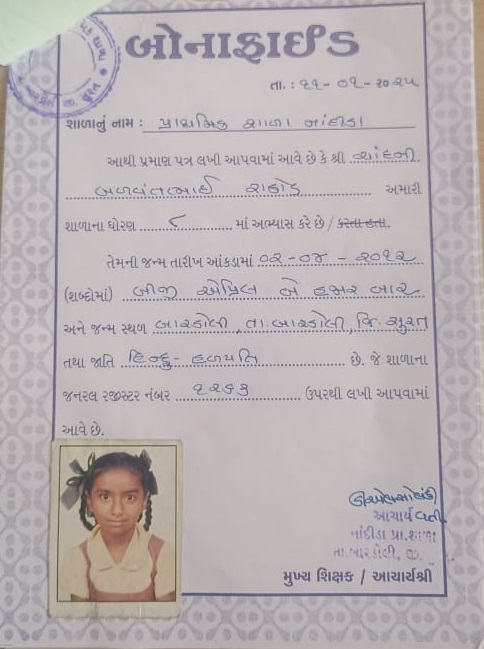 બોનાફાઈડ
તા. : ૨૧-૦૧-૨૦૨૫
શાળાનું નામ : પ્રાથમિક શાળા નાંદીડા
આથી પ્રમાણ પત્ર લખી આપવામાં આવે છે કે શ્રી ચાંદની
બળવંતભાઈ રાઠોડ અમારી
શાળાના ધોરણ ૮ માં અભ્યાસ કરે છે / કરતા હતા.
તેમની જન્મ તારીખ આંકડામાં ૦૨-૦૪-૨૦૧૨
(શબ્દોમાં) બીજી એપ્રિલ બે હજાર બાર
અને જન્મ સ્થળ બારડોલી, તા. બારડોલી, જિ. સુરત
તથા જાતિ હિન્દુ- હળપતિ છે. જે શાળાના
જનરલ રજીસ્ટર નંબર ૧૨૬૩ ઉપરથી લખી આપવામાં
આવે છે.
આચાર્ય વતી
નાંદીડા પ્રા. શાળા
તા. બારડોલી, જી.
મુખ્ય શિક્ષક / આચાર્યશ્રી